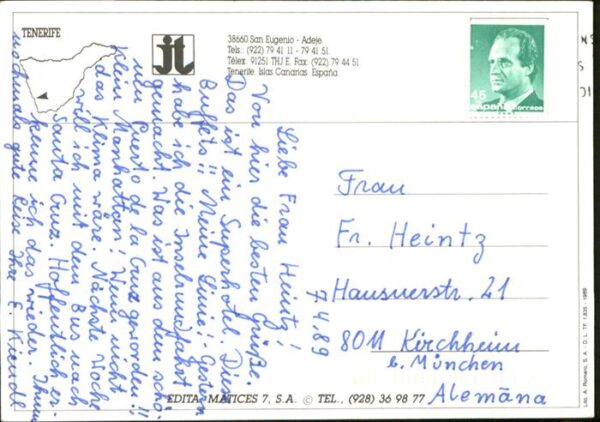 TENERIFE
jt
38660 San Eugenio - Adeje.
Tels.: (922) 79 41 11 - 79 41 51.
Télex: 91251 THJ E. Fax: (922) 79 44 51.
Tenerife. Islas Canarias. España
45
españa correos
7.4.89
Liebe Frau Heintz!
Von hier die besten Grüße.
Das ist ein Superhotel. Diese
Buffets!! Meine Linie! - Gestern
habe ich die Inselrundfahrt
gemacht. Was ist aus dem schö-
nen Puerto de la Cruz geworden!!
Klein Manhattan! Wenn nicht
das Klima wäre. Nächste Woche
will ich mit dem Bus nach
Santa Cruz. Hoffentlich er-
kenne ich das wieder. Ihnen
nochmals gute Reise Ihre E. Kiendl
Frau
Fr. Heintz
Hausnerstr. 21
8011 Kirchheim
b. München
Alemãna
EDITA: MATICES 7, S.A. © TEL., (928) 36 98 77
Lito. A. Romero, S. A. - D. L. TF. 1.835 - 1989